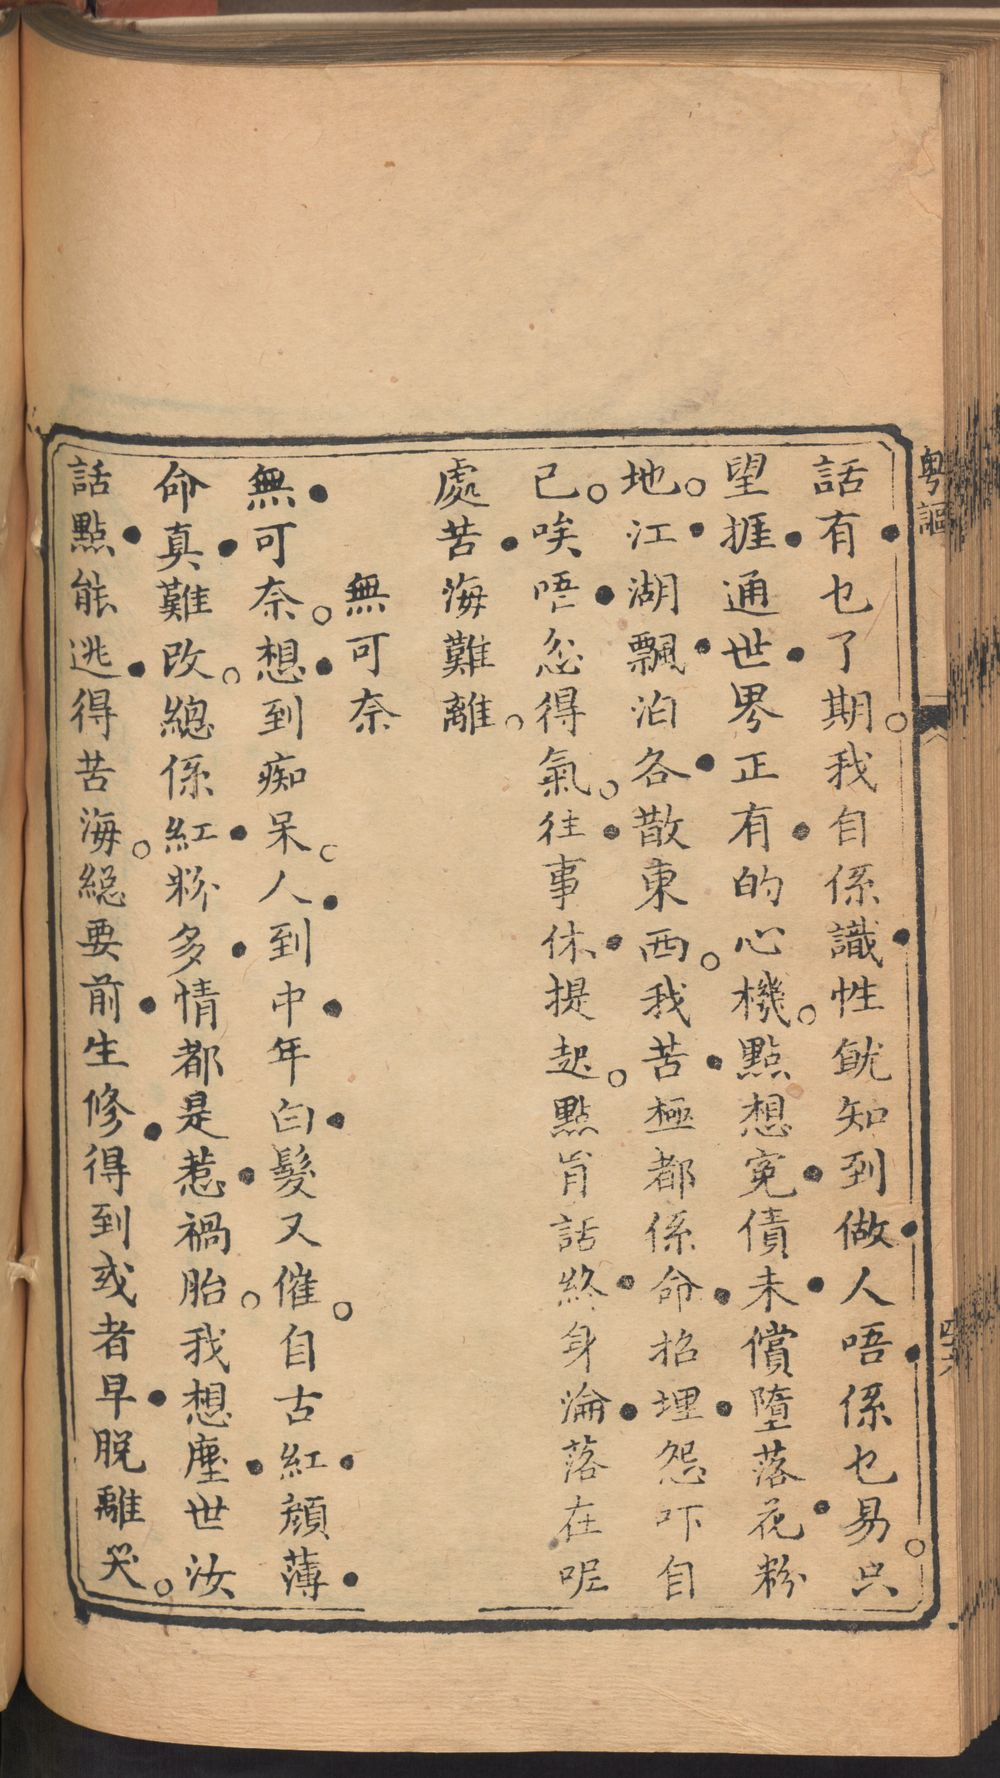 粵謳
話有乜了期○我自係識性就知到做人唔係乜易○只
望捱通世界正有的心機○點想冤債未償墮落花粉
地○江湖飄泊各散東西○我苦極都係命招埋怨吓自
己○唉唔忿得氣○往事休提起○點肯話終身淪落在呢
處苦海難離○
無可奈
無可奈○想到痴呆○人到中年白髮又催○自古紅顏薄
命真難改○總係紅粉多情都是惹禍胎○我想塵世汝
話點能逃得苦海○總要前生修得到或者早脫離災○